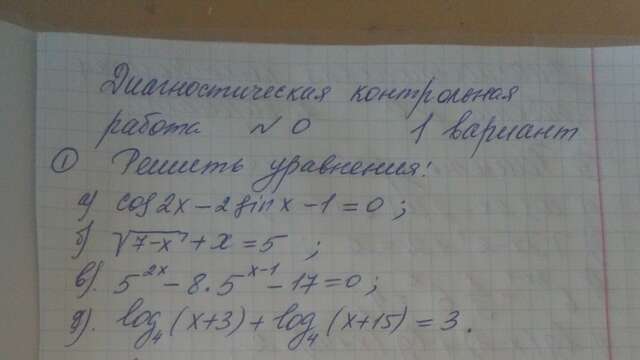 Диагностическая контрольная
работа № 0 1 вариант
① Решить уравнения:
а) cos 2x – 2 sin x – 1 = 0 ;
б) √(7–x) + x = 5 ;
в) 5^(2x) – 8 · 5^(x–1) – 17 = 0 ;
д). log₄ (x+3) + log₄ (x+15) = 3 .